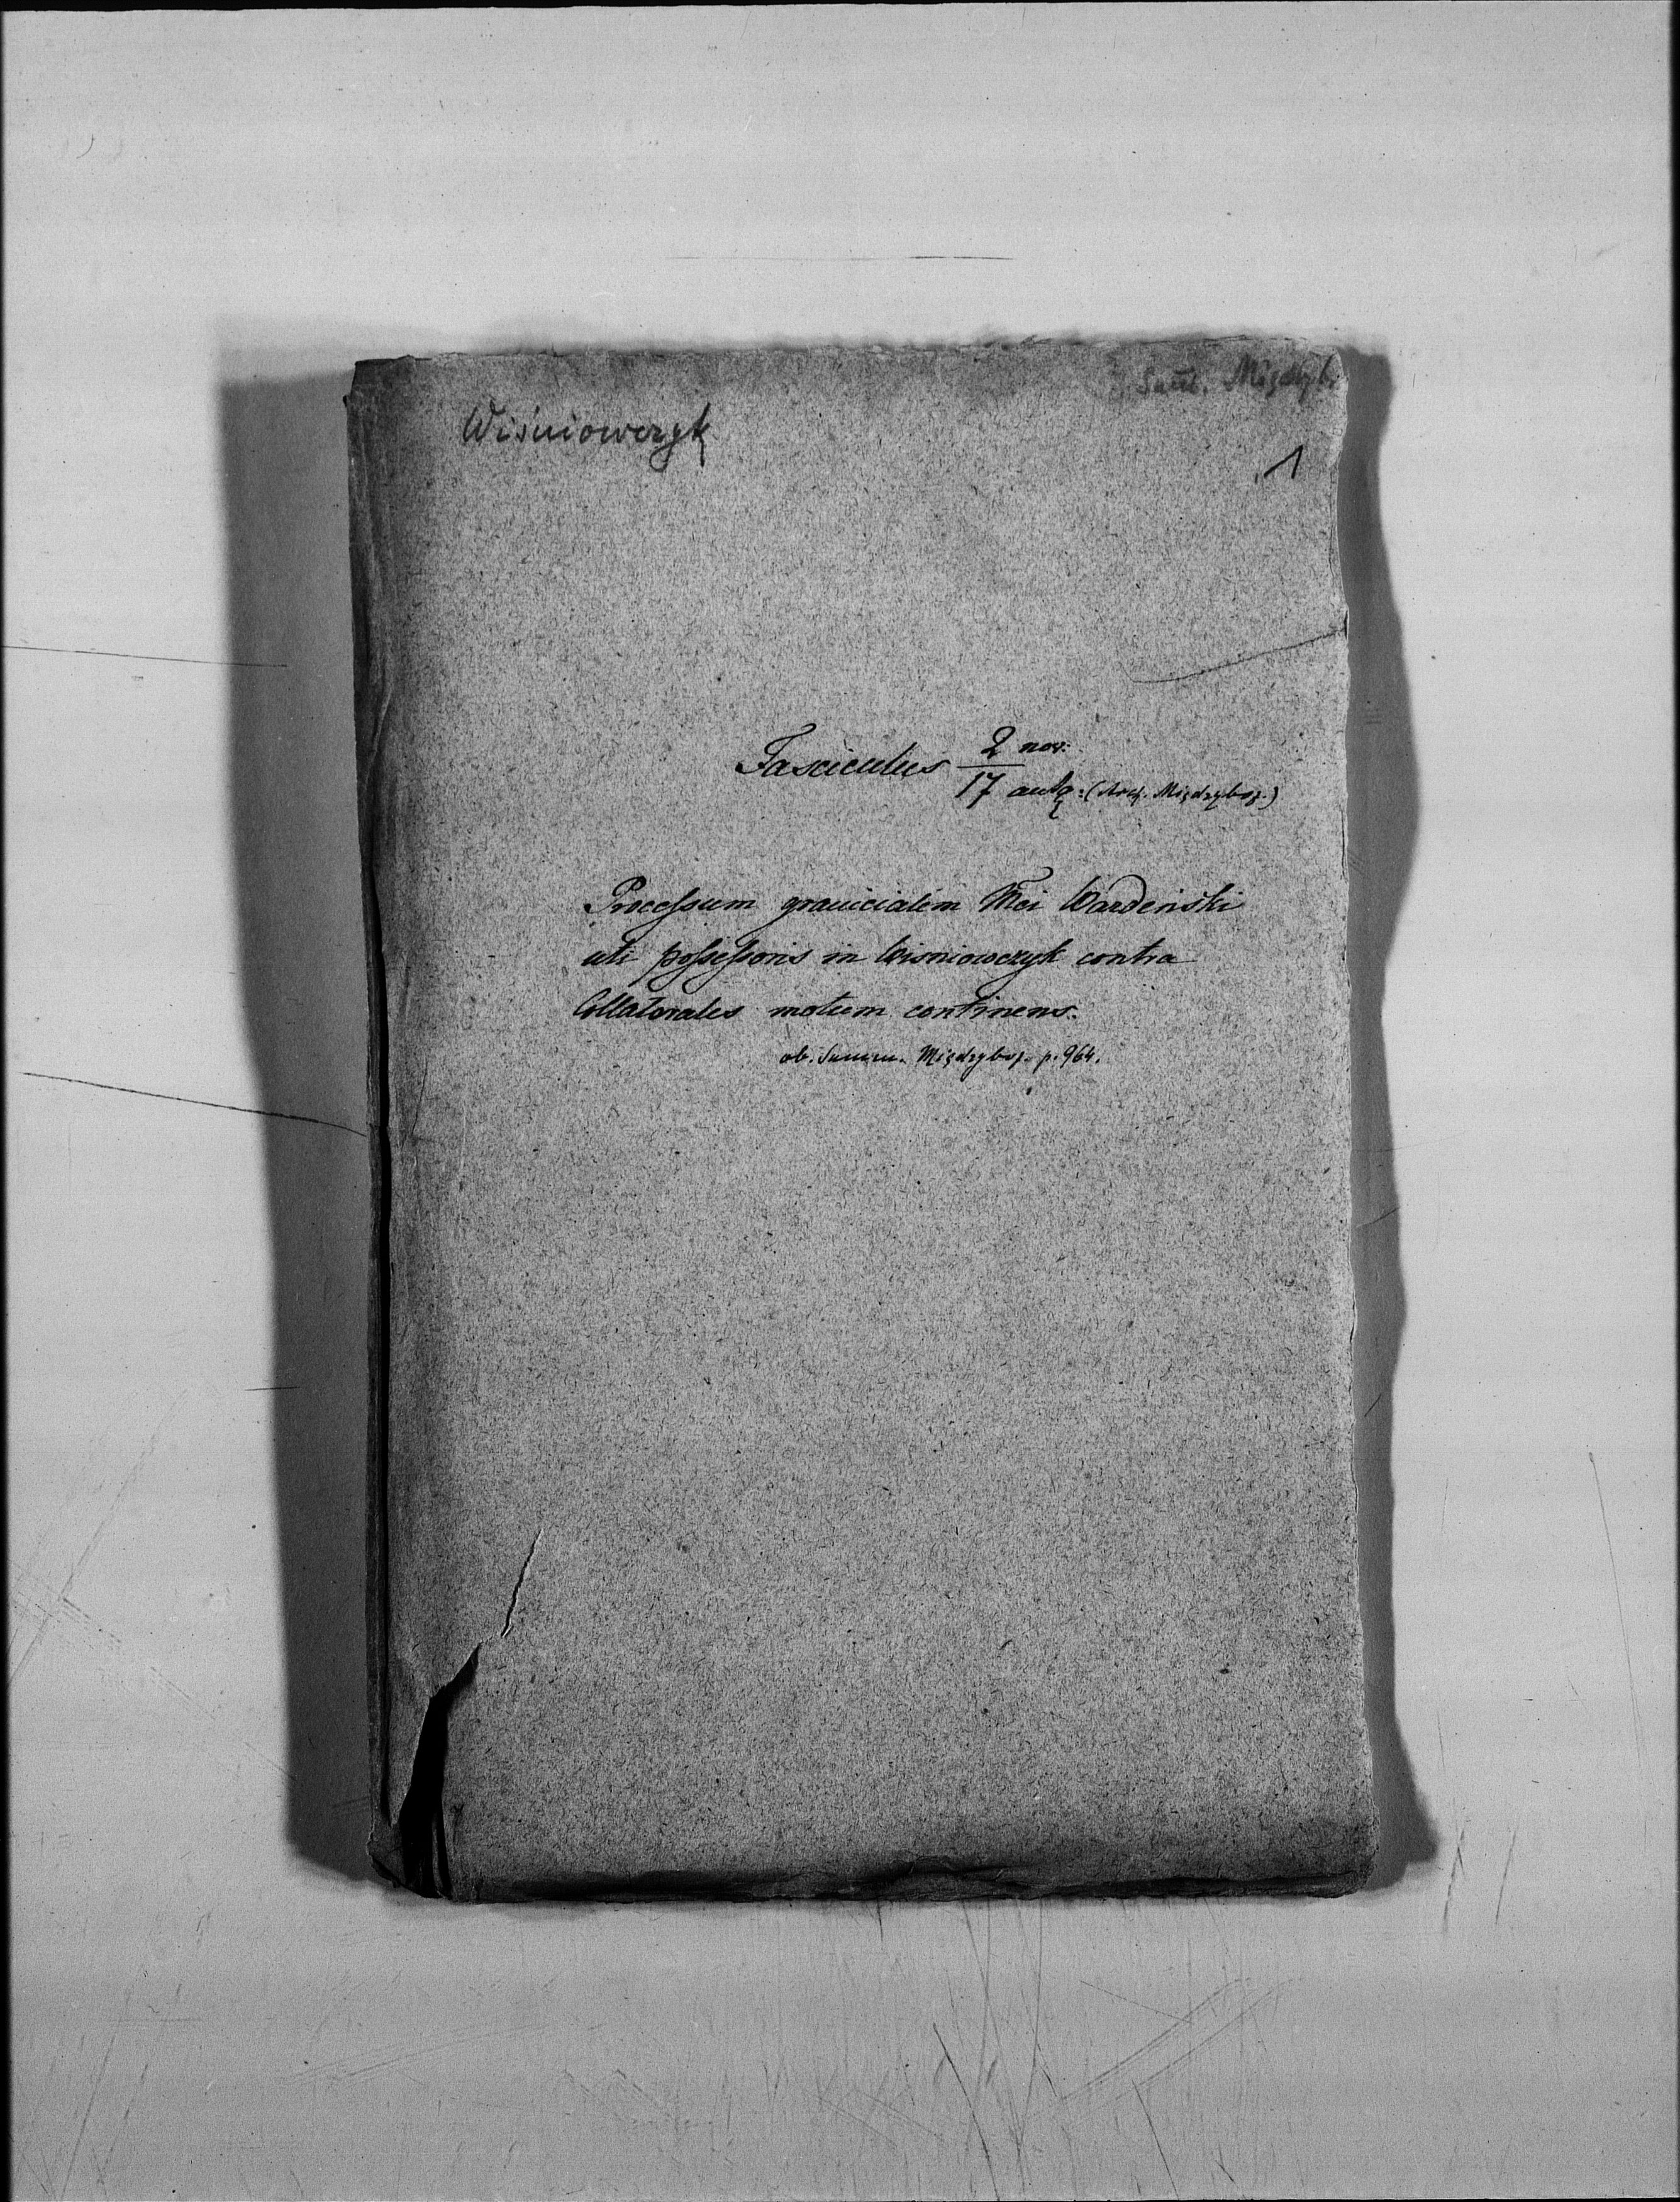 Międzyb.
Wiśniowczyk
1
Fasciculus 2 nov:
17 antq: (Arch. Międzyboż.)
Processum granicialem Mci Wardeński
uti possessoris in Wisniowczyk contra
Collaterales motum continens.
ob. Summ. Międzyboż. p. 964.